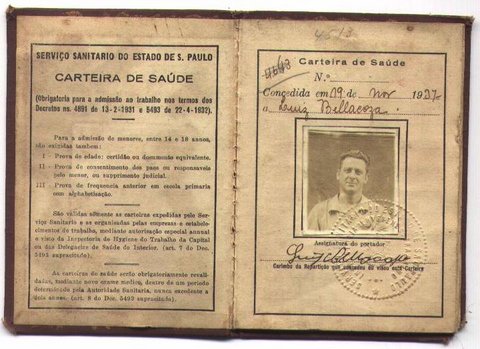 SERVIÇO SANITARIO DO ESTADO DE S. PAULO
CARTEIRA DE SAÚDE
(Obrigatoria para a admissão ao trabalho nos termos dos
Decretos ns. 4891 de 13-2-1931 e 5493 de 22-4-1932).
Para a admissão de menores, entre 14 e 18 annos, são
exigidas tambem:
I - Prova de edade: certidão ou documento equivalente.
II - Prova de consentimento dos paes ou responsaveis
pelo menor, ou supprimento judicial.
III - Prova de frequencia anterior em escola primaria
com alphabetisação.
São validas sómente as carteiras expedidas pelo Ser-
viço Sanitario e as organisadas pelas empresas e estabele-
cimentos de trabalho, mediante autorisação especial annual
e visto da Inspectoria de Hygiene do Trabalho da Capital
ou das Delegacias de Saúde do Interior. (art. 7 do Dec.
5493 supracitado).
As carteiras de saúde serão obrigatoriamente revali-
dadas, mediante novo exame medico, dentro de um periodo
determinado pela Autoridade Sanitaria, nunca excedente
a dois annos. (art. 8 do Dec. 5493 supracitado).
4513
Carteira de Saúde
N.º
Concedida em 09 de Nov 1937
a Luiz Bellacoza
Assignatura do portador
Luiz Bellacoza
Carimbo da Repartição que concedeu ou visou esta Carteira